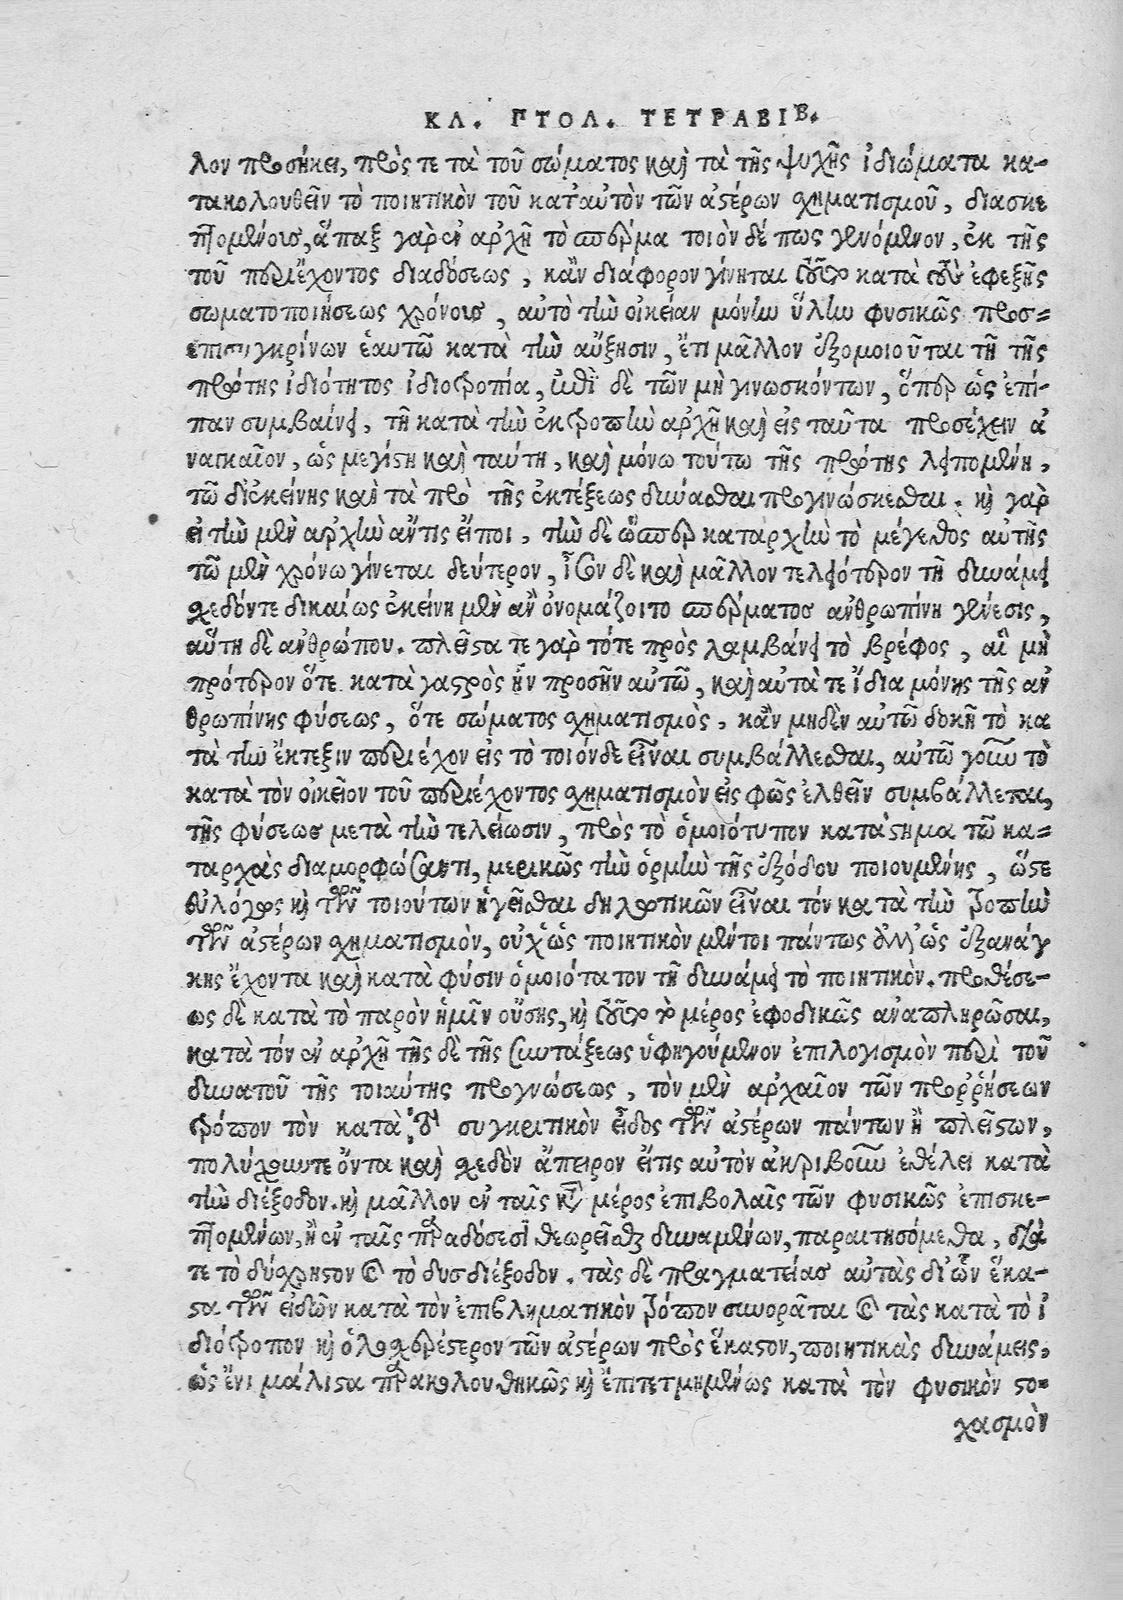 ΚΛ. ΠΤΟΛ. ΤΕΤΡΑΒΙΒ.
λον προσήκει, πρός τε τὰ τοῦ σώματος καὶ τὰ τῆς ψυχῆς ἰδιώματα κα-
τακολουθεῖν τὸ ποιητικὸν τοῦ κατ' αὐτὸν τῶν ἀστέρων σχηματισμοῦ, διασκε
πτομένοις, ἅπαξ γὰρ ἐν ἀρχῇ τὸ σπέρμα τοιὸν δέ πως γενόμενον, ἐκ τῆς
τοῦ περιέχοντος διαδόσεως, κἂν διάφορον γίνηται τοῦτο κατὰ τοὺς ἐφεξῆς
σωματοποιήσεως χρόνους, αὐτὸ τὴν οἰκείαν μόνην ὕλην φυσικῶς προσ=
επισυγκρίνων ἑαυτῶ κατὰ τὴν αὔξησιν, ἔτι μᾶλλον ἐξομοιοῦται τῇ τῆς
πρώτης ἰδιότητος ἰδιοτροπία, ἐπὶ δὲ τῶν μὴ γινωσκόντων, ὅπερ ὡς ἐπί-
παν συμβαίνει, τῇ κατὰ τὴν ἐκτροπὴν ἀρχῇ καὶ εἰς ταῦτα προσέχειν ἀ
ναγκαῖον, ὡς μεγίστη καὶ ταύτη, καὶ μόνω τούτω τῆς πρώτης λειπομένη,
τῶ δι' ἐκείνης καὶ τὰ πρὸ τῆς ἐκτέξεως δύνασθαι προγινώσκεσθαι. καὶ γὰρ
εἰ τὴν μὲν ἀρχὴν ἄν τις εἴποι, τὴν δὲ ὥσπερ καταρχὴν τὸ μέγεθος αὐτῆς
τῶ μὲν χρόνω γίνεται δεύτερον, ἴσον δὲ καὶ μᾶλλον τελειότερον τῇ δυνάμει
σχεδόν τε δικαίως ἐκείνη μὲν ἂν ὀνομάζοιτο σπέρματος ἀνθρωπίνη γένεσις,
αὕτη δὲ ἀνθρώπου. πλεῖστα τε γὰρ τότε πρὸς λαμβάνει τὸ βρέφος, αἳ μὴ
πρότερον ὅτε κατὰ γαστρὸς ἦν προσῆν αὐτῶ, καὶ αὐτά τε ἴδια μόνης τῆς ἀν
θρωπίνης φύσεως, ὅτε σώματος σχηματισμὸς, κἂν μηδὲν αὐτῶ δοκῇ τὸ κα
τὰ τὴν ἔκτεξιν περιέχον εἰς τὸ τοιόνδε εἶναι συμβάλλεσθαι, αὐτῶ γοῦν τὸ
κατὰ τὸν οἰκεῖον τοῦ περιέχοντος σχηματισμὸν εἰς φῶς ἐλθεῖν συμβάλλεται,
τῆς φύσεως μετὰ τὴν τελείωσιν, πρὸς τὸ ὁμοιότυπον κατάστημα τῶ κα=
ταρχὰς διαμορφώσαντι, μερικῶς τὴν ὁρμὴν τῆς ἐξόδου ποιουμένης, ὥστε
εὐλόγως καὶ τῶν τοιούτων ἡγεῖσθαι δηλωτικὸν εἶναι τόν κατὰ τὴν τροπὴν
τῶν ἀστέρων σχηματισμὸν, οὐχ' ὡς ποιητικὸν μέντοι πάντως ἀλλ' ὡς ἐξανάγ
κης ἔχοντα καὶ κατὰ φύσιν ὁμοιότατον τῇ δυνάμει τὸ ποιητικὸν. προθέσε-
ως δὲ κατὰ τὸ παρὸν ἡμῖν οὔσης, καὶ τοῦτο τὸ μέρος ἐφοδικῶς ἀναπληρῶσαι,
κατὰ τόν ἐν ἀρχῇ τῆς δὲ τῆς συντάξεως ὑφηγούμενον ἐπιλογισμὸν περὶ τοῦ
δυνατοῦ τῆς τοιαύτης προγνώσεως, τὸν μὲν ἀρχαῖον τῶν προῤῥήσεων
τρόπον τὸν κατὰ τὸ συγκριτικὸν εἶδος τῶν ἀστέρων πάντων ἢ πλείστων,
πολύχουντε ὄντα καὶ σχεδὸν ἄπειρον εἴτις αὐτὸν ἀκριβοῦν ἐθέλει κατὰ
τὴν διέξοδον. καὶ μᾶλλον ἐν ταῖς κατὰ μέρος ἐπιβολαῖς τῶν φυσικῶς ἐπισκε-
πτομένων, ἢ ἐν ταῖς παραδόσεσι θεωρεῖσθαι δυναμένων, παραιτησόμεθα, διά
τε τὸ δύσχρηστον καὶ τὸ δυσδιέξοδον. τὰς δὲ πραγματείας αὐτὰς δι' ὧν ἕκα-
στα τῶν εἰδῶν κατὰ τὸν ἐπιβληματικὸν τρόπον συνορᾶται καὶ τὰς κατὰ τὸ ἰ
διότροπον καὶ ὁλοσχερέστερον τῶν ἀστέρων πρὸς ἕκαστον, ποιητικὰς δυνάμεις,
ὡς ἔνι μάλιστα παρακολουθηκῶς καὶ ἐπιτετμημένως κατὰ τὸν φυσικὸν στο=
χασμὸν